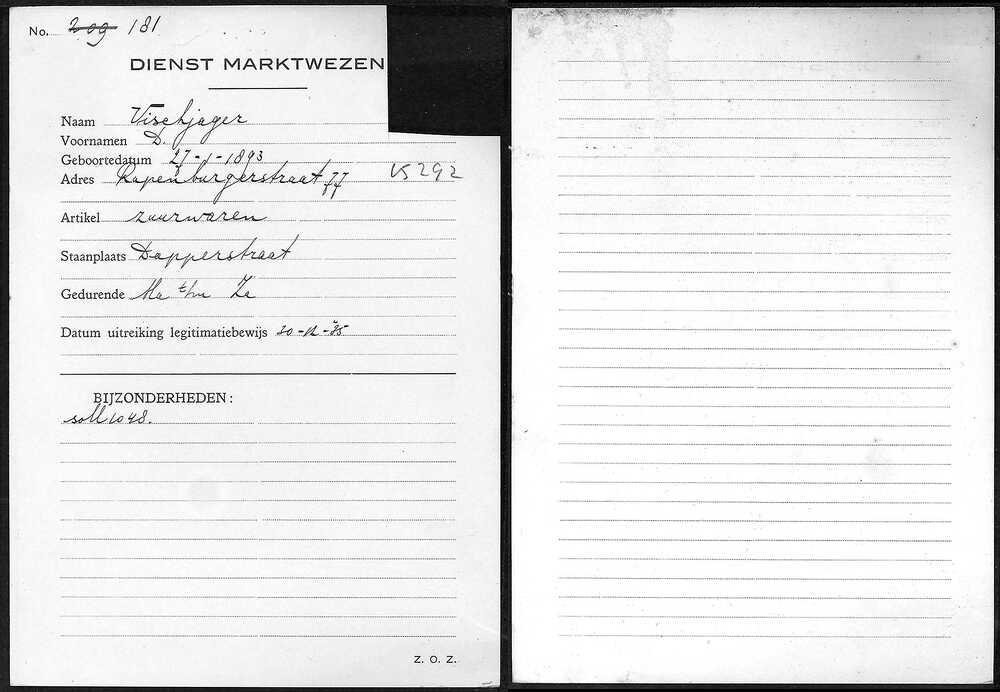 No. 209 181
DIENST MARKTWEZEN
Naam Vischjager
Voornamen D.
Geboortedatum 27-1-1893
Adres Rapenburgerstraat 77 VS 292
Artikel zuurwaren
Staanplaats Dapperstraat
Gedurende Ma t/m Za
Datum uitreiking legitimatiebewijs 30-12-'35
BIJZONDERHEDEN:
soll 1048.
Z. O. Z.